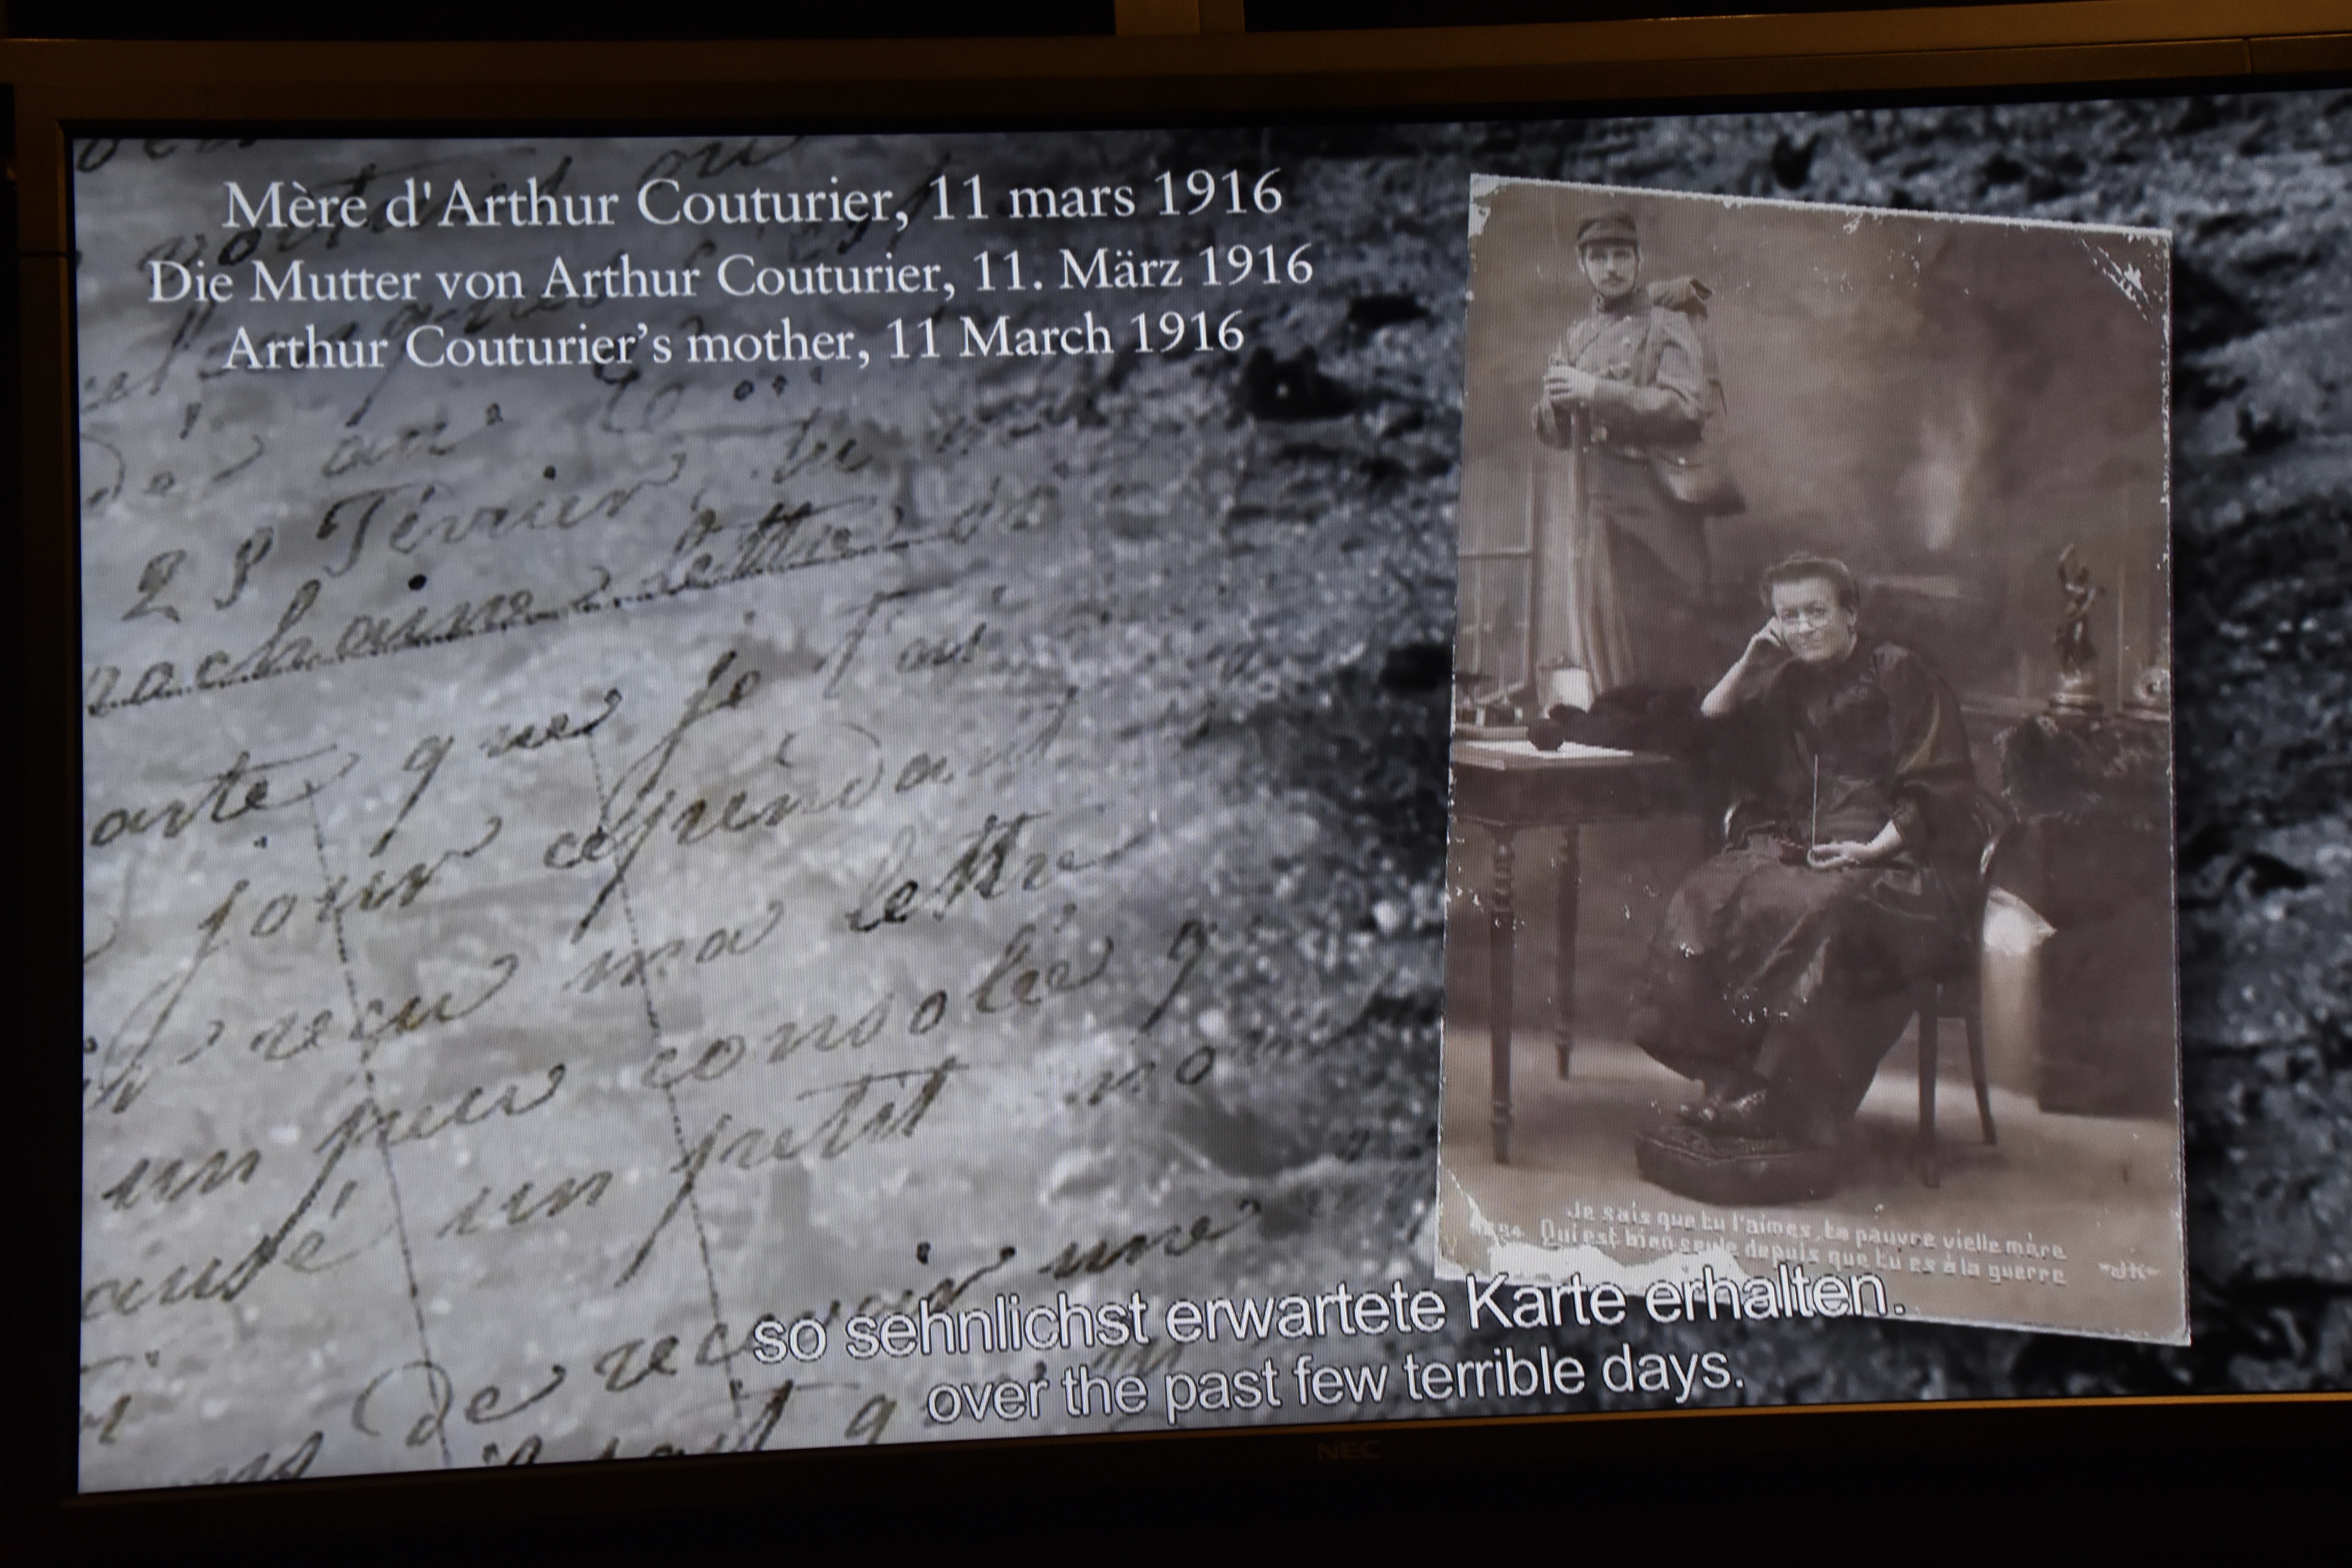 Mère d'Arthur Couturier, 11 mars 1916
Die Mutter von Arthur Couturier, 11. März 1916
Arthur Couturier's mother, 11 March 1916
28 Février tu
prochaine lettre
carte que je
jour cependant
reçu ma lettre
un peu consolée
un petit
De recevoir une
Je sais que tu l'aimes, ta pauvre vielle mère
Qui est bien seule depuis que tu es à la guerre
JK
so sehnlichst erwartete Karte erhalten.
over the past few terrible days.
NEC